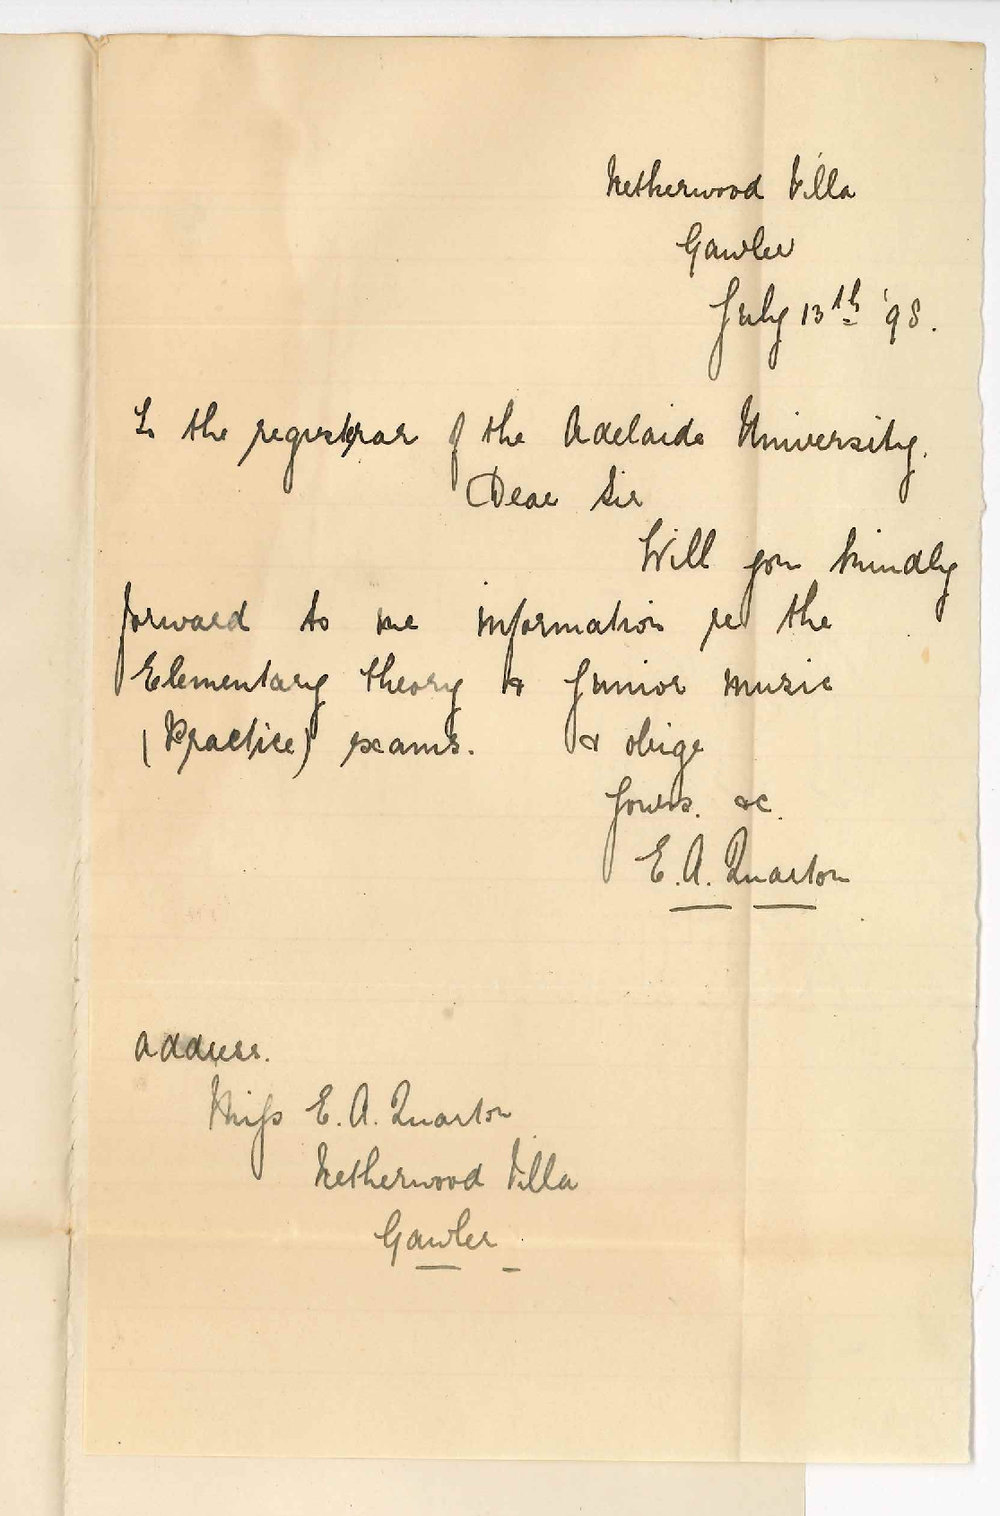 Netherwood Villa
Gawler
July 13th '98.
To the registrar of the Adelaide University.
Dear Sir
Will you kindly
forward to me information re the
Elementary theory & Junior music
(Practice) exams. & oblige
Yours. &c.
E. A. Quarton
Address.
Miss E. A. Quarton
Netherwood Villa
Gawler.